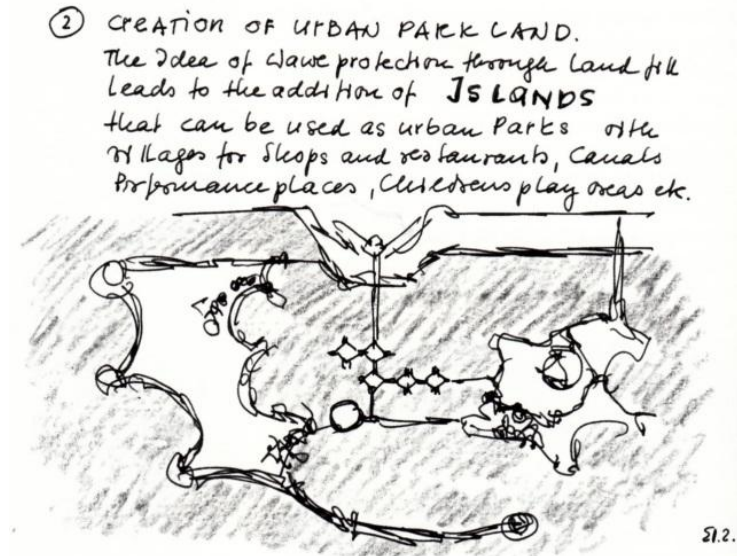 2 CREATION OF URBAN PARK LAND.
The Idea of Wave protection through Land fill
leads to the addition of ISLANDS
that can be used as urban Parks with
Villages for Shops and restaurants, Canals
Performance places, Childrens play areas etc.